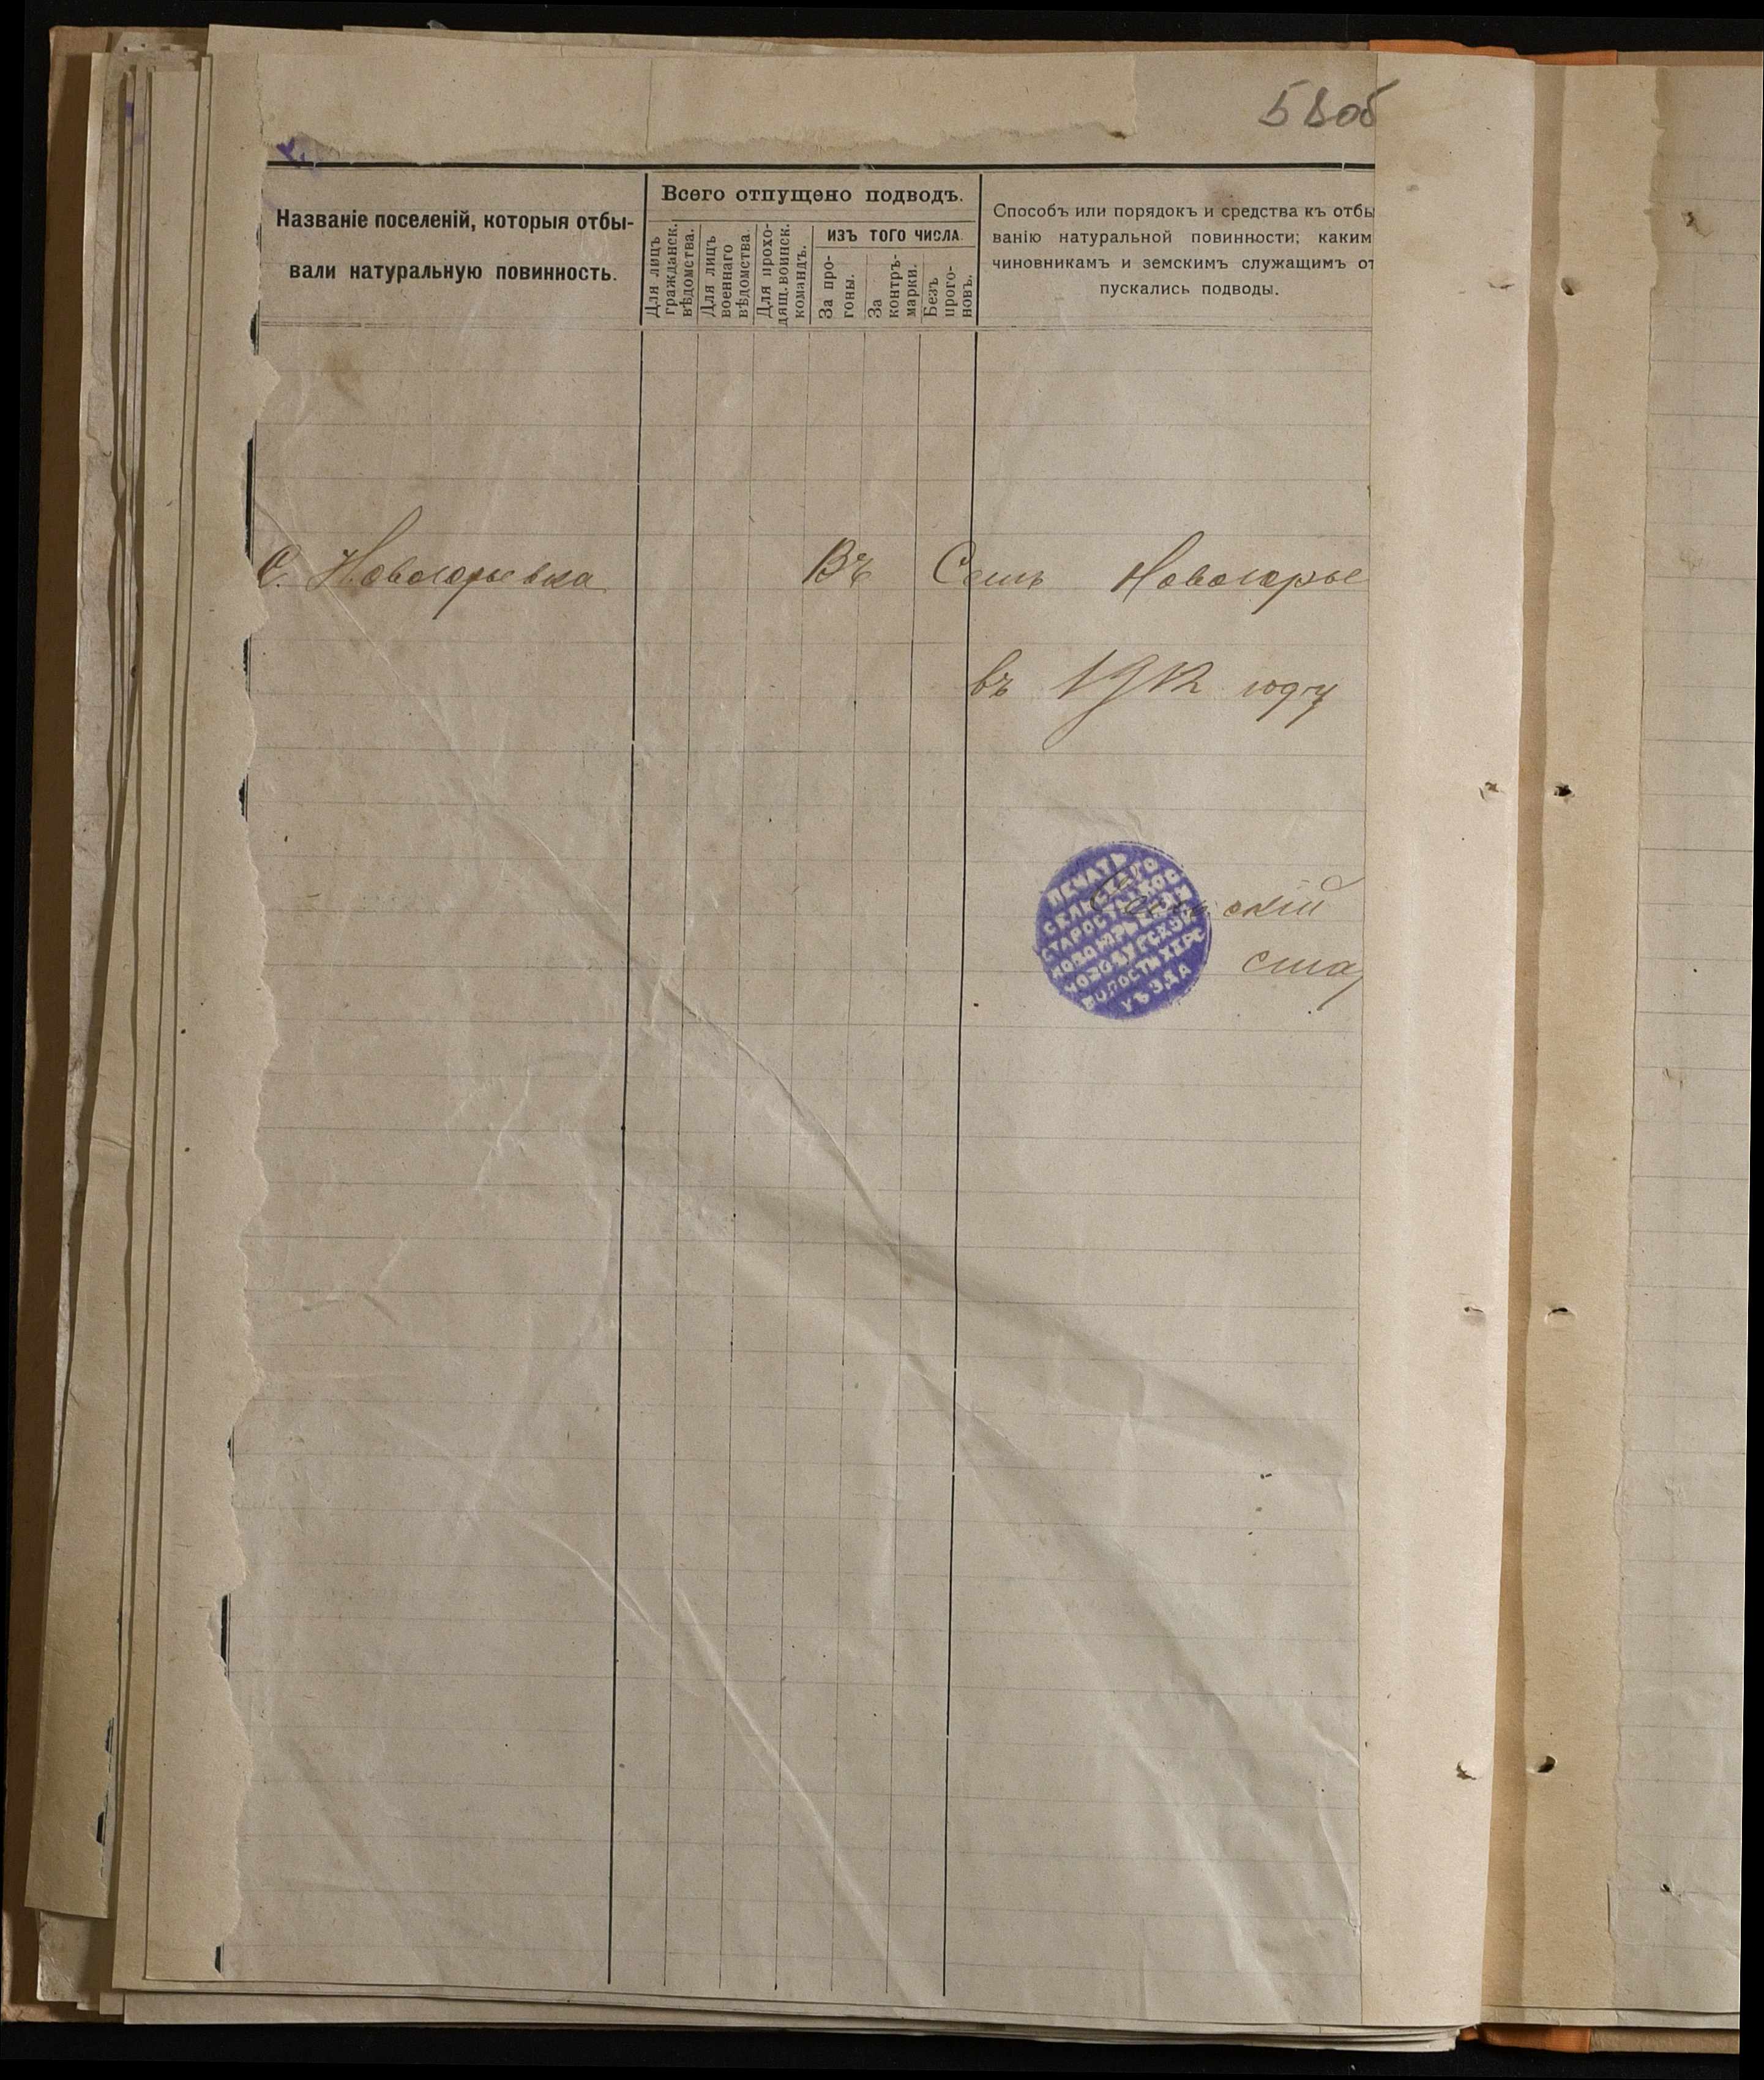 58об
Названіе поселеній, которыя отбы-
вали натуральную повинность.
Всего отпущено подводъ.
Для лицъ
гражданск.
вѣдомства.
Для лицъ
военнаго
вѣдомства
Для прохо-
дящ. воинск.
командъ.
ИЗЪ ТОГО ЧИСЛА.
За про-
гоны.
За
контръ-
марки.
Безъ
прого-
новъ.
Способъ или порядокъ и средства къ отбы
ванію натуральной повинности; каким
чиновникамъ и земскимъ служащимъ от
пускались подводы.
С. Новоюрьевка
Въ Селѣ Новоюрье
въ 1912 году
Сельскій
ста
ПЕЧАТЬ
СЕЛЬСКАГО
СТАРОСТЫ
ВОЛОСТЬ ХЕРС
УѢЗДА